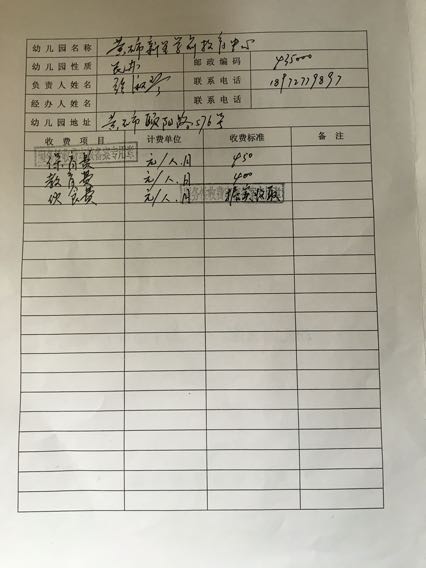 幼儿园名称 黄石市新星学前教育中心
幼儿园性质 民办 邮政编码 435000
负责人姓名 联系电话 18972779897
经办人姓名 联系电话
幼儿园地址 黄石市 颐阳路576号
收费项目 计费单位 收费标准 备注
保育费 元/人.月 450
教育费 元/人.月 400
伙食费 元/人.月 据实收取